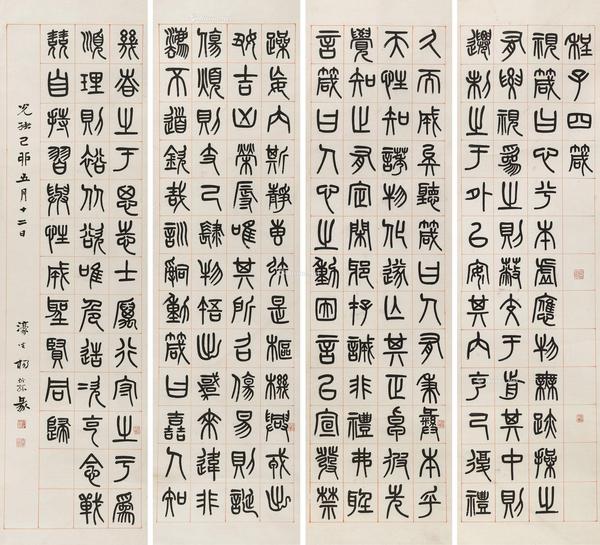 程子四箴
視箴曰心兮本虛應物無跡操之
有要視為之則蔽交于前其中則
遷制之于外以安其內克己復禮
久而誠矣聽箴曰人有秉彝本乎
天性知誘物化遂亡其正卓彼先
覺知止有定閑邪存誠非禮弗聽
言箴曰人心之動因言以宣發禁
躁妄內斯靜專矧是樞機興戎出
好吉凶榮辱唯其所召傷易則誕
傷煩則支己肆物忤出悖來違非
灋不道欽哉訓辭動箴曰哲人知
幾誠之于思志士厲行守之于為
順理則裕從欲唯危造次克念戰
兢自持習與性成聖賢同歸
光緒己卯五月十二日
濠叟楊沂孫篆